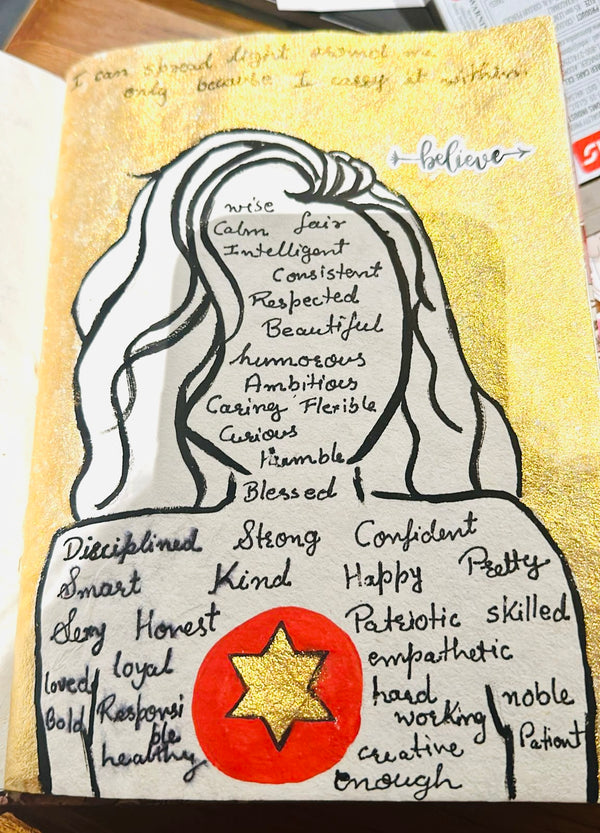 I can spread light around me
only because I carry it within
believe
wise
Calm fair
Intelligent
Consistent
Respected
Beautiful
humorous
Ambitious
Caring Flexible
Curious
Humble
Blessed
Disciplined Strong Confident
Smart Kind Happy Pretty
Sexy Honest Patriotic skilled
loved loyal empathetic
Bold Responsi
ble
hard
working
noble
Patient
healthy
creative
enough